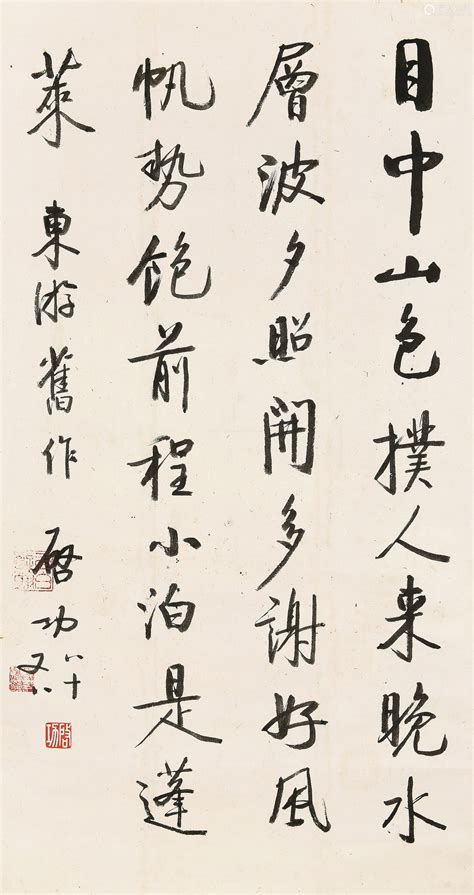 目中山色撲人来晚水
層波夕照開多謝好風
帆勢飽前程小泊是蓬
萊 東游舊作 啓功 八十又八
啓功